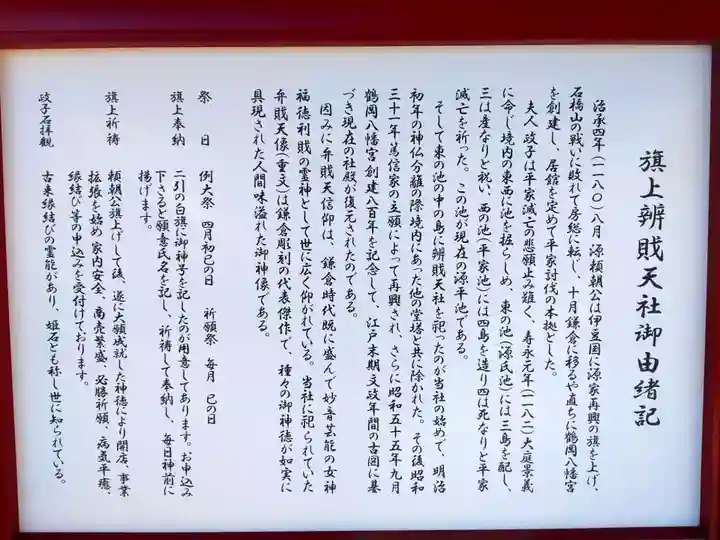 旗上辨戝天社御由緒記
治承四年(一一八〇)八月 源頼朝公は伊豆国に源家再興の旗を上げ、
石橋山の戦いに敗れて房総に転し、十月鎌倉に移るや直ちに鶴岡八幡宮
を創建し、居館を定めて平家討伐の本拠とした。
夫人 政子は平家滅亡の悲願止み難く、寿永元年(一一八二)大庭景義
に命じ境内の東西に池を掘らしめ、東の池(源氏池)には三島を配し、
三は産なりと祝い、西の池(平家池)には四島を造り四は死なりと平家
滅亡を祈った。この池が現在の源平池である。
そして東の池の中の島に辨戝天社を祀ったのが当社の始めで、明治
初年の神仏分離の際境内にあった他の堂塔と共に除かれた。その後昭和
三十一年篤信家の立願によって再興され、さらに昭和五十五年九月
鶴岡八幡宮創建八百年を記念して、江戸末期文政年間の古図に基
づき現在の社殿が復元されたのである。
因みに弁戝天信仰は、鎌倉時代既に盛んで妙音芸能の女神
福徳利戝の霊神として世に広く仰がれている。当社に祀られていた
弁戝天像(重文)は鎌倉彫刻の代表傑作で、種々の御神徳が如実に
具現された人間味溢れた御神像である。
祭 日 例大祭 四月初巳の日 祈願祭 毎月 巳の日
旗上奉納 二引の白旗に御神号を記したのが用意してあります。お申込み
下さると願意氏名を記し、祈祷して奉納し、毎日神前に
揚げます。
旗上祈祷 頼朝公旗上げして後、遂に大願成就した神徳により開店、事業
拡張を始め家内安全、商売繁盛、必勝祈願、病気平癒、
縁結び等の申込みを受付けております。
政子石拝観 古来縁結びの霊能があり、姫石とも称し世に知られている。